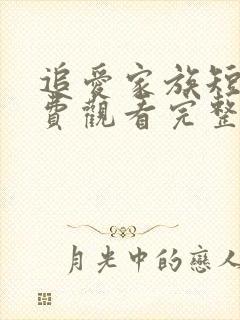 追愛家族短
費觀看完整
月光中的戀人